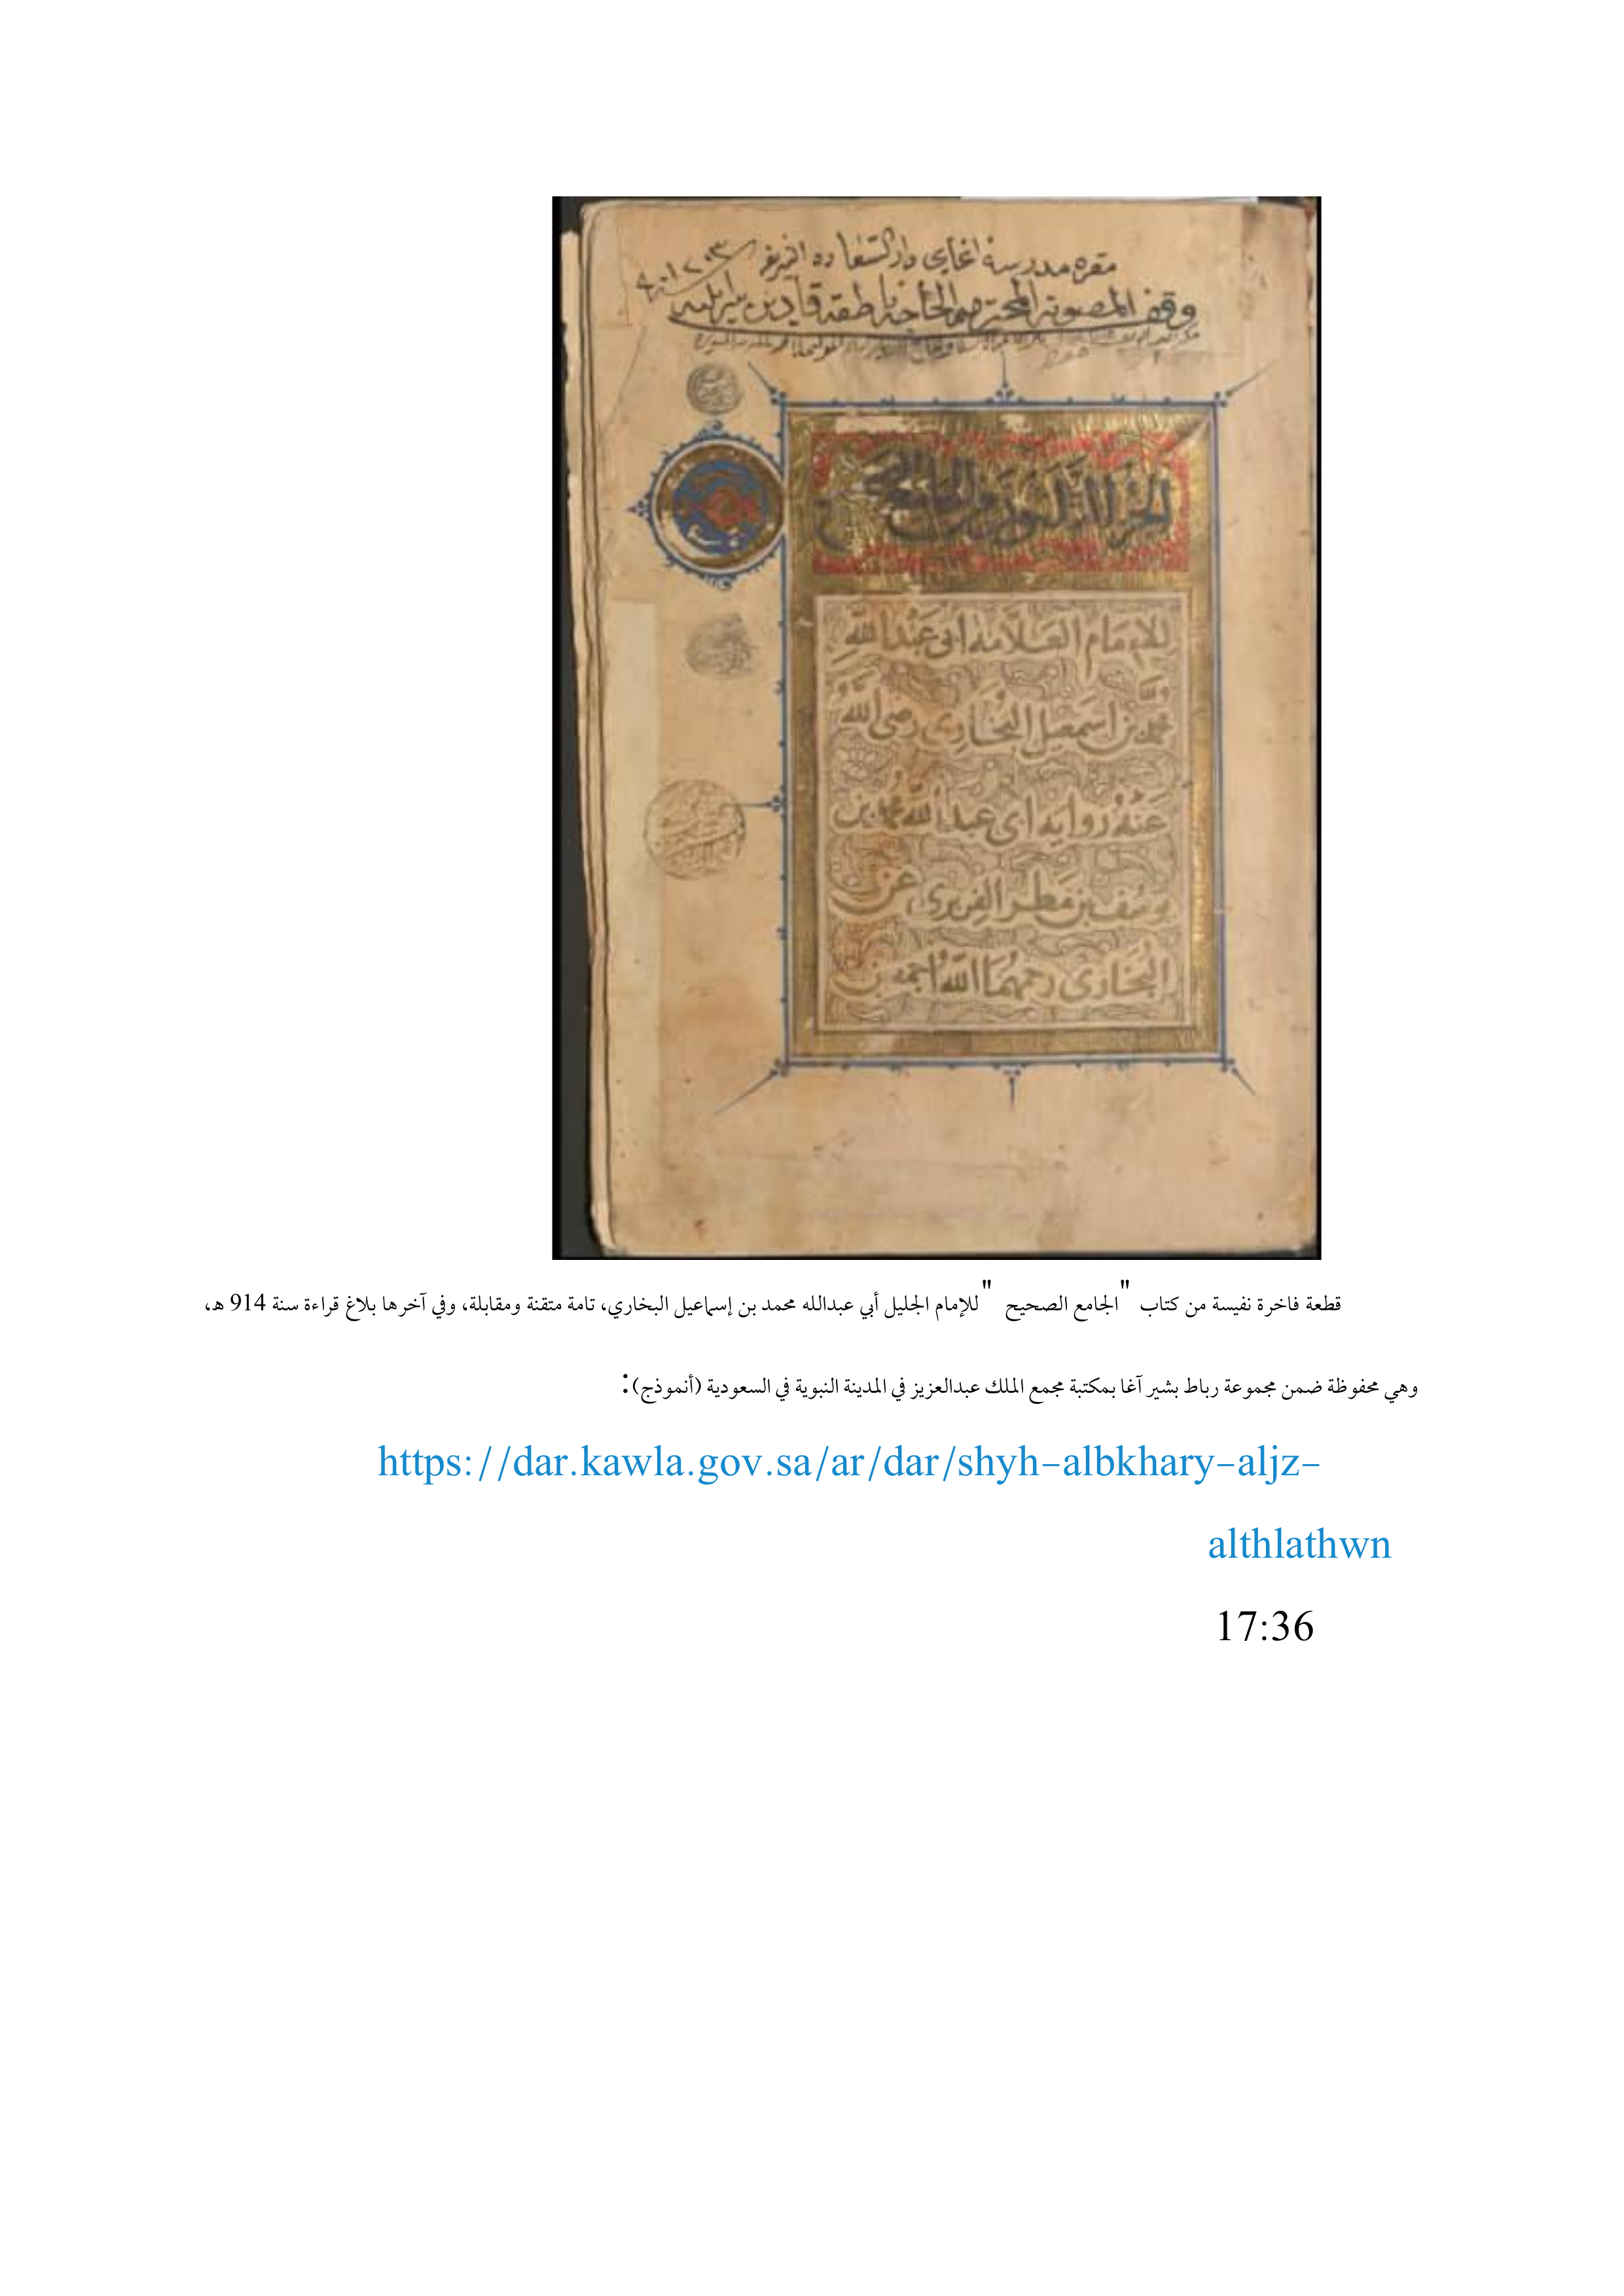 مقره مدرسة اغاي دار السعاده
وقف المصونة المحترمة الحاجة فاطمة قادين
الجزء الثلثون من الجامع الصحيح
للإمام العلامة أبي عبد الله
محمد بن اسمعيل البخاري رضي الله
عنه رواية ابي عبد الله محمد بن
يوسف بن مطر الفربري عن
البخاري رحمهما الله اجمعين
قطعة فاخرة نفيسة من كتاب "الجامع الصحيح" للإمام الجليل أبي عبدالله محمد بن إسماعيل البخاري، تامة متقنة ومقابلة، وفي آخرها بلاغ قراءة سنة 914 هـ،
وهي محفوظة ضمن مجموعة رباط بشير آغا بمكتبة مجمع الملك عبدالعزيز في المدينة النبوية في السعودية (أنموذج):
https://dar.kawla.gov.sa/ar/dar/shyh-albkhary-aljz-
althlathwn
17:36